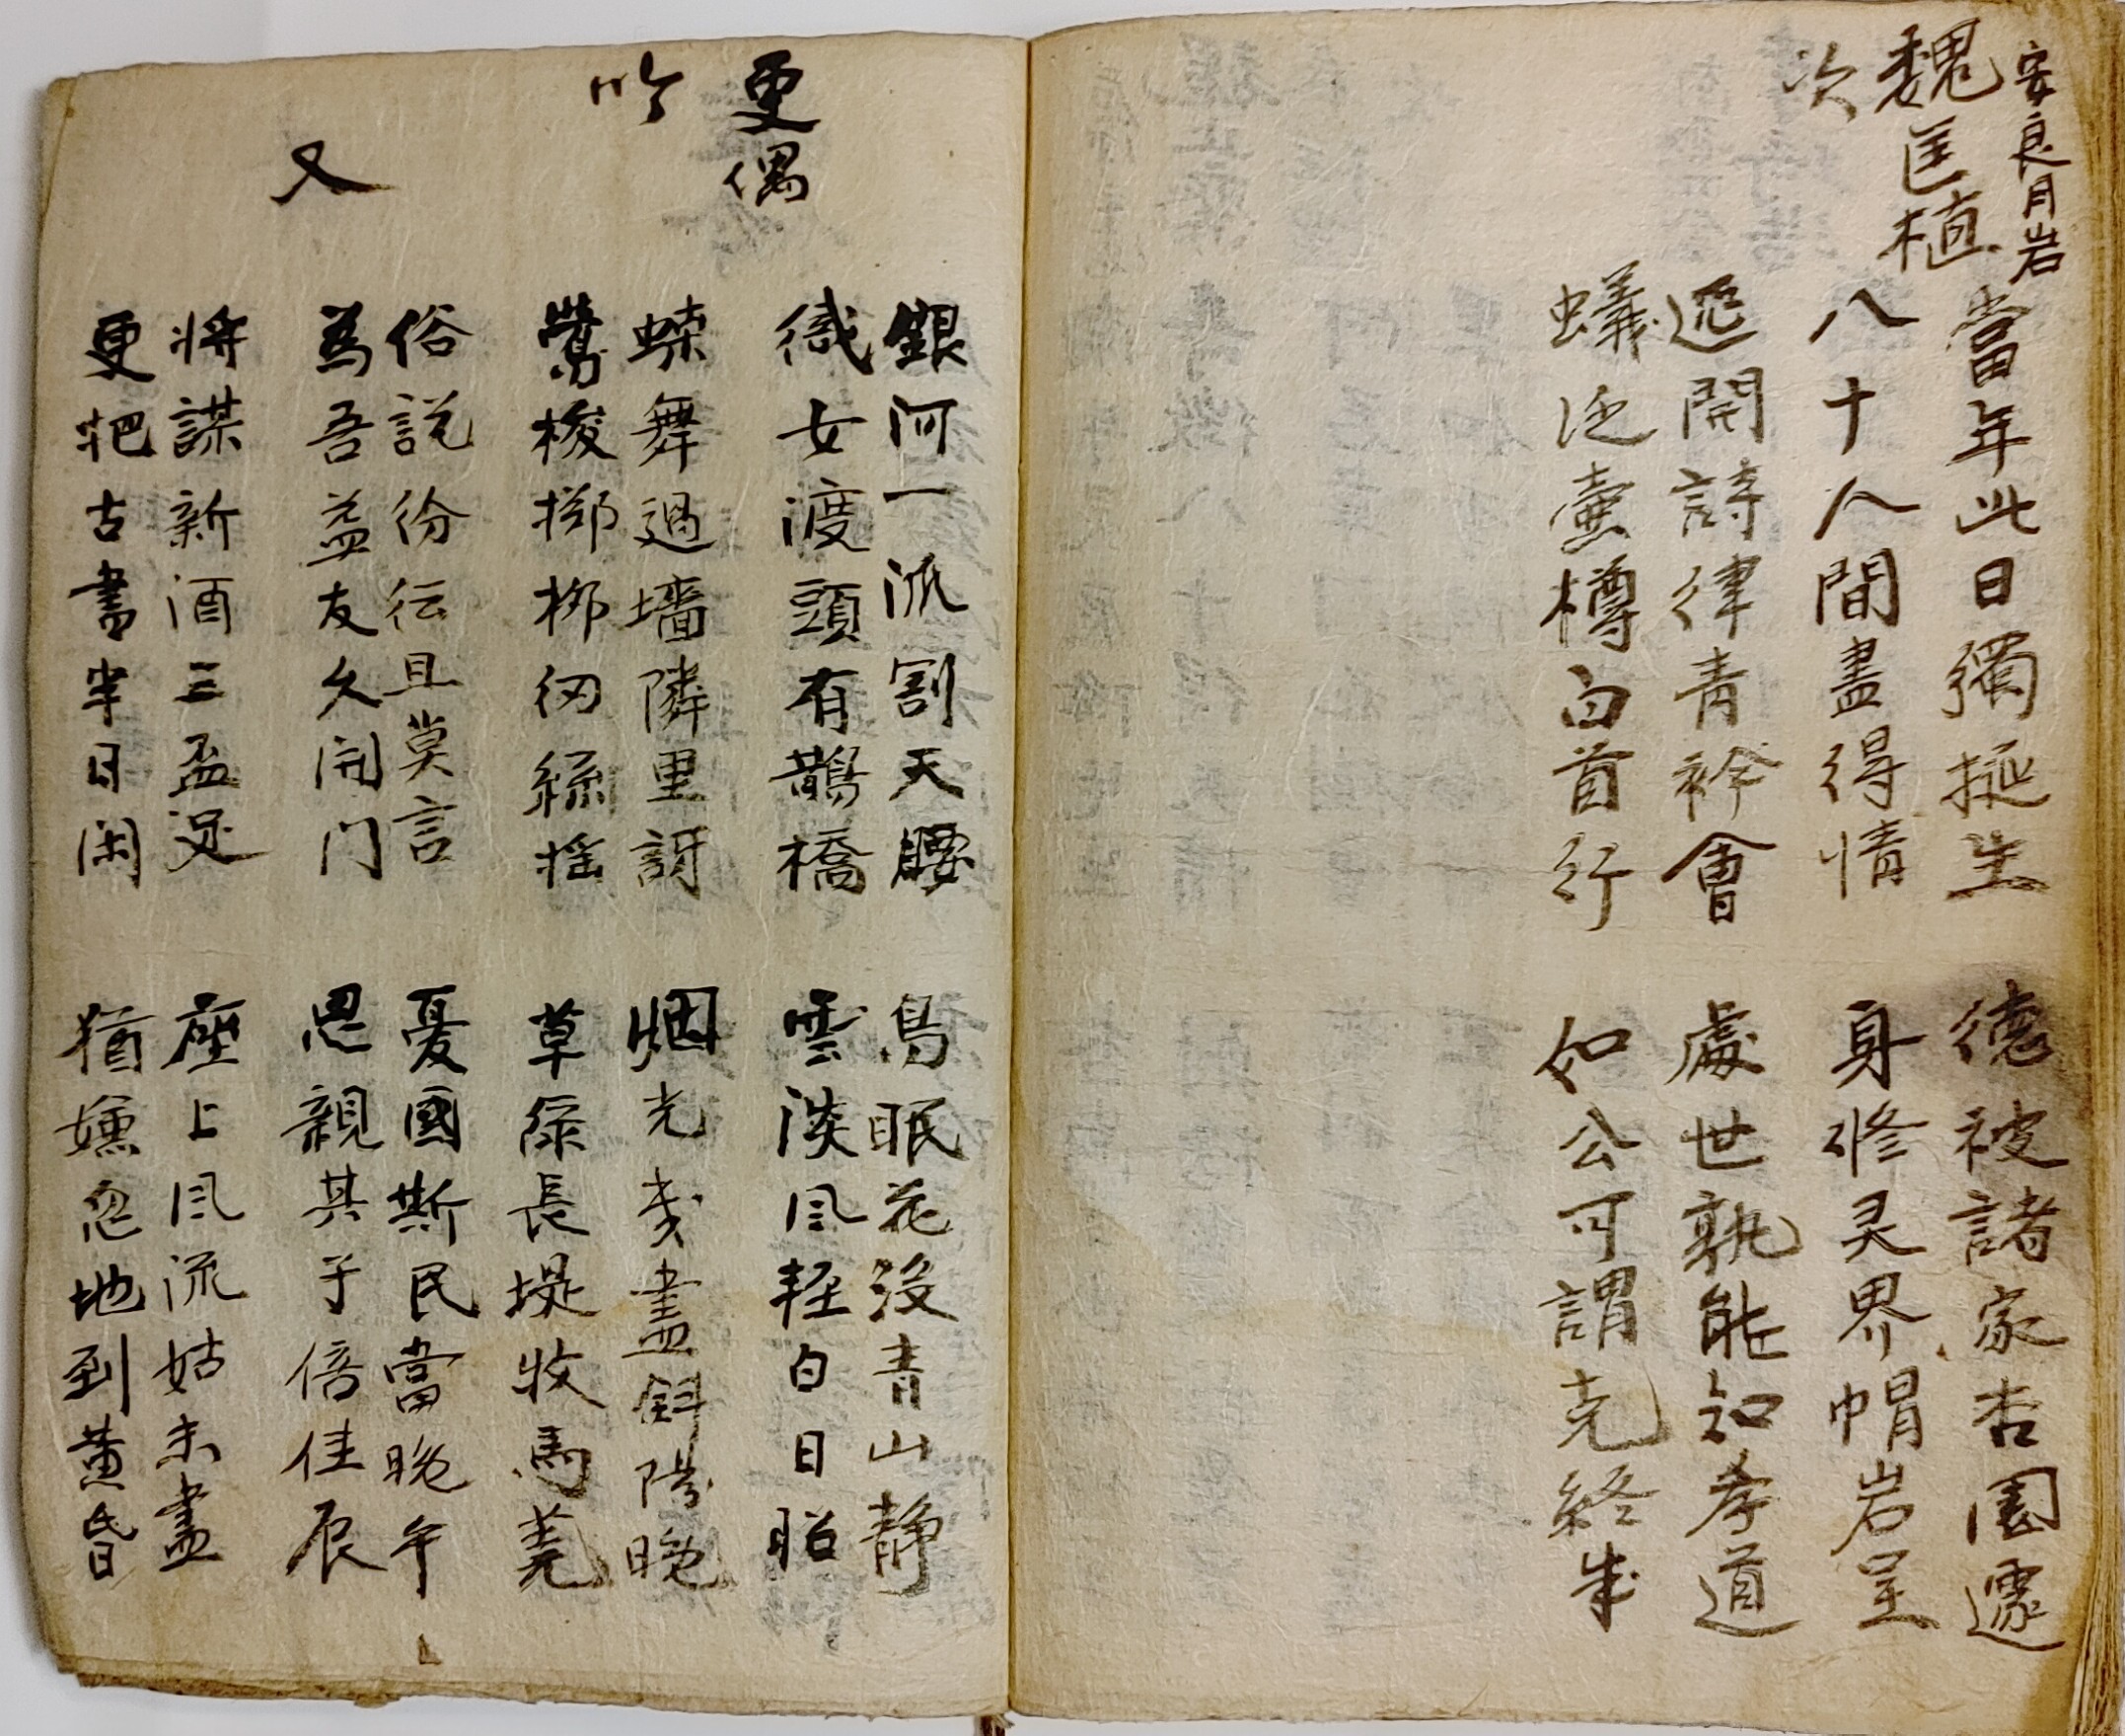 安良月岩
魏匡植
次
當年此日獨挺生
德被諸家杏園邊
八十人間盡得情
身修灵界帽岩呈
延開詩律青衿會
處世孰能知孝道
蟻泛壺樽白首行
如公可謂克終成
更偶
吟
銀河一派割天腰
鳥眠花沒青山静
織女渡頭有鵲橋
雲淡风輕白日昭
蝶舞過墻隣里訝
烟光盡斜陽晚
鶯梭擲柳絲搖
草綠長堤牧馬蕘
又
俗説紛紜且莫言
憂國斯民當晚年
為吾益友久開门
思親其子倍佳辰
將謀新酒三盃足
座上风流姑未盡
更把古書半日閑
猶嫌忽地到黃昏